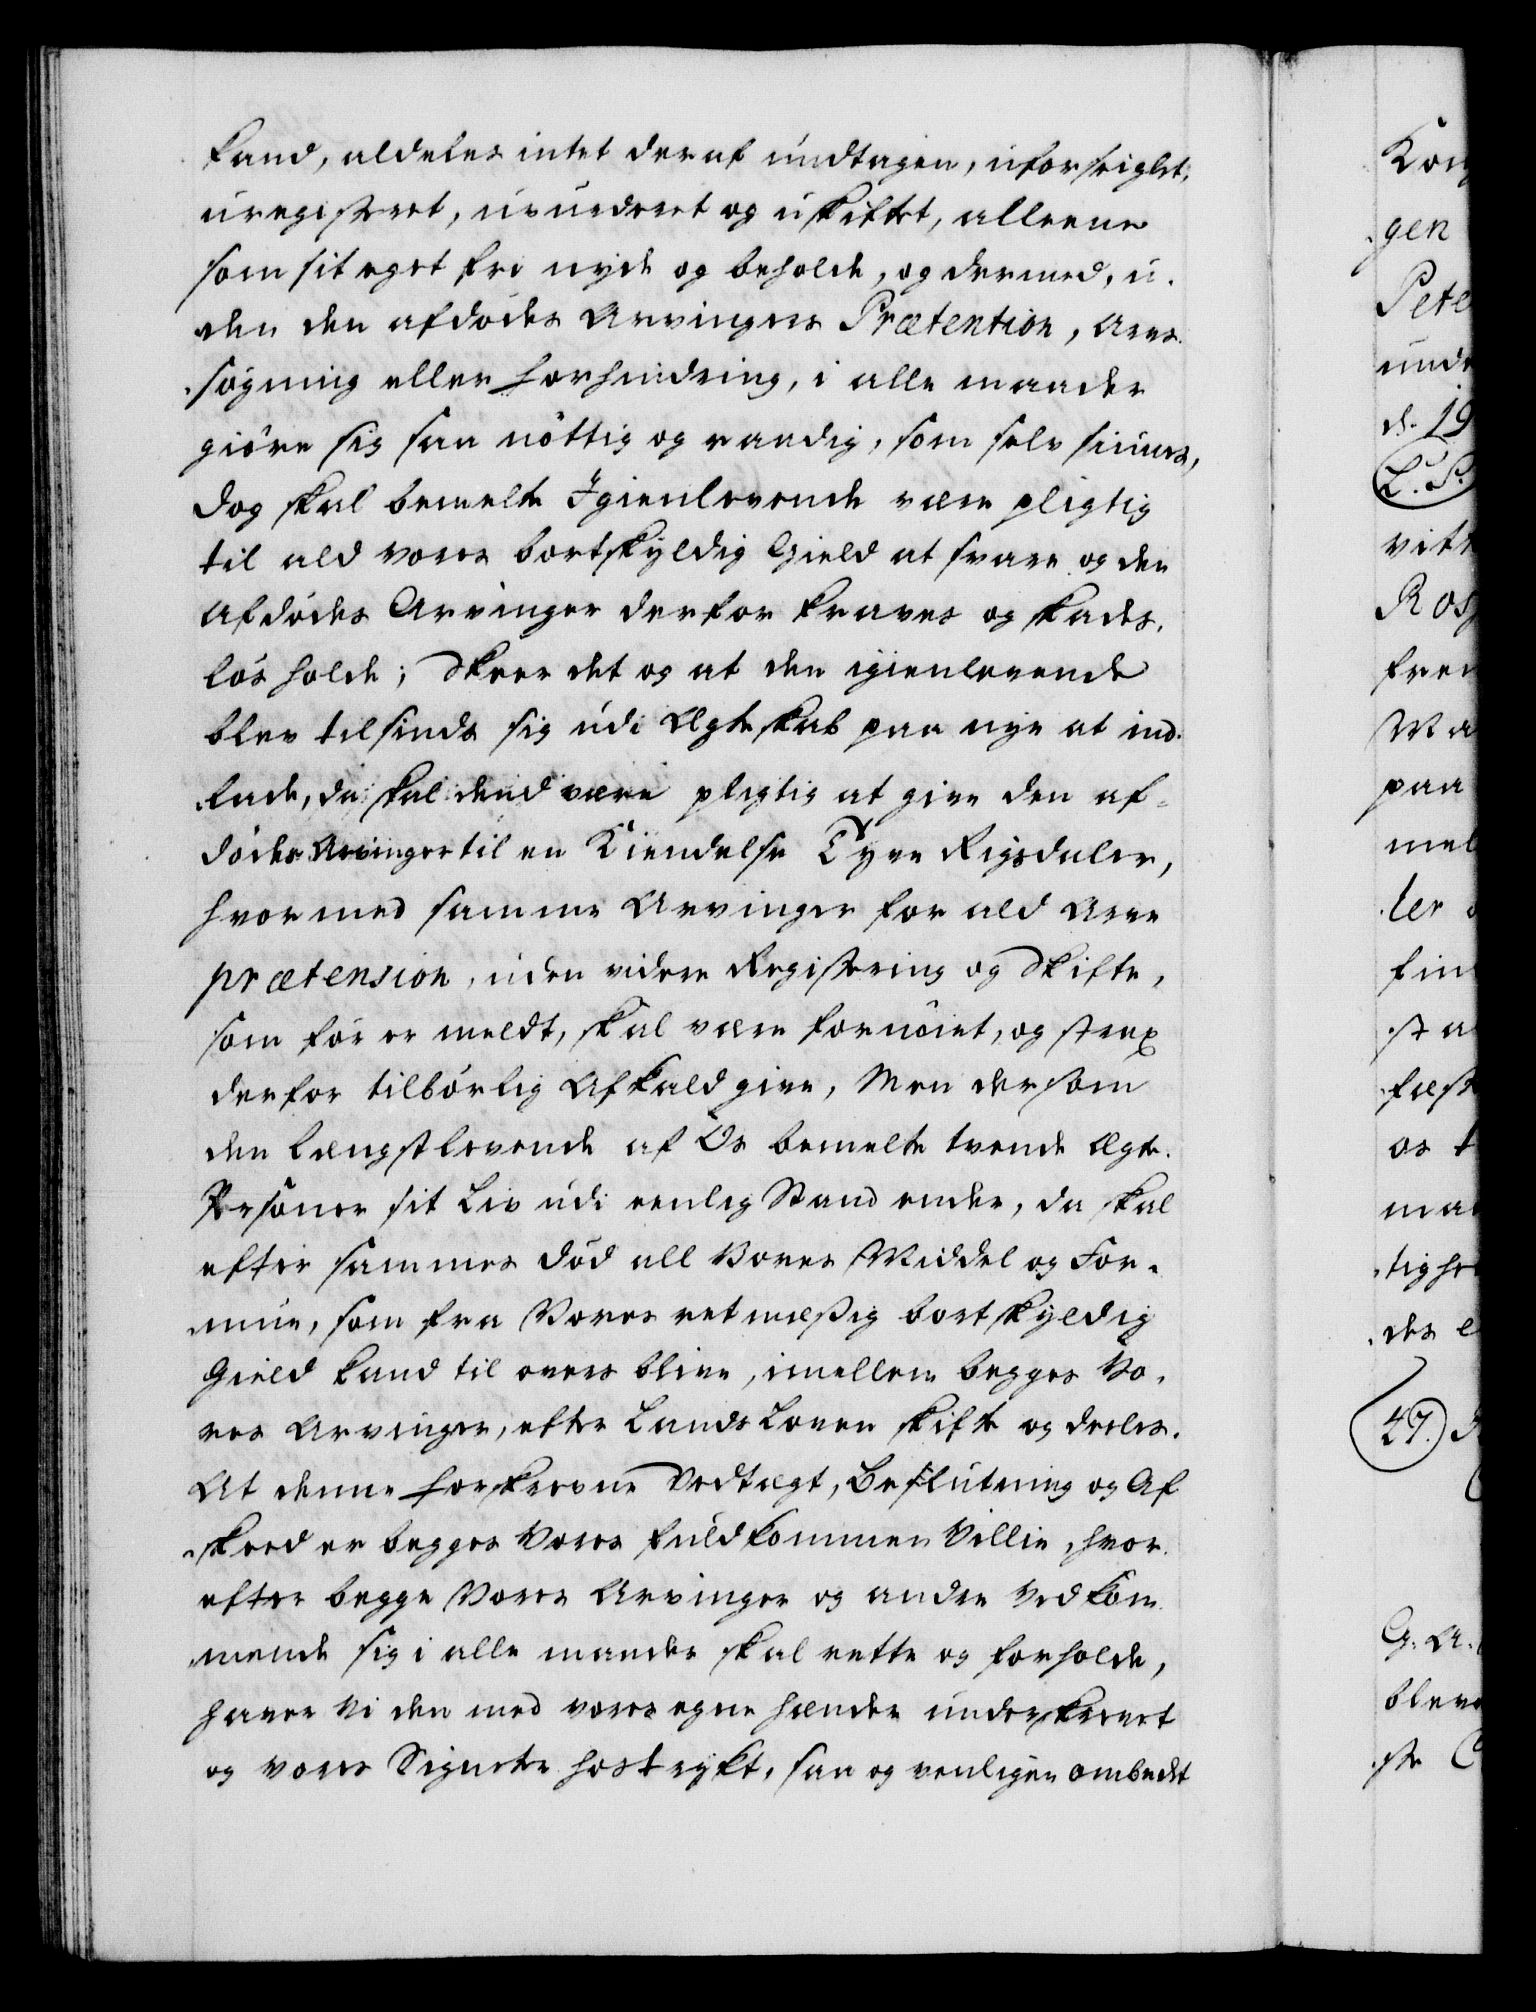 kand, aldeles intet deraf undtagen, uforseiglet,
uregistrert, uvurdert og uskiftet, alleene
som sit eget frie nyde og beholde, og dermed, u-
den den afdødes Arvingers Prætention, Arvs
søgning eller Forhindring, i alle maader
giøre sig saa nøttig og raadig, som selv sinnes,
dog skal bemelte Igienlevende være pligtig
til ald vores bortskyldig Gield at svare og den
afdødes Arvinger derfor kraves og skades-
løs holde; Skeer det og at den igienlevende
blev tilsinds sig udi Ægteskab paa nye at ind-
lade, da skal dend være pligtig at give den af-
dødes Arvinger til en Kiendelse Tyve Rigsdaler,
hvormed samme Arvinger for ald Arve
prætension, uden videre Registering og Skifte,
som før er meldt, skal være fornøiet, og strax
derfor tilbørlig Afkald give, Men dersom
den Længstlevende af Os bemelte tvende Ægte-
Persohner sit Liv udi eenlig Stand ender, da skal
efter sammes død all Vores Middel og For-
mue, som fra Vores retmæssig bortskyldig
Gield kand til overs blive, imellem begges Vo-
res Arvinger, efter Lands Loven skifte og deeles.
At denne Forskrevne Vedtægt, Beslutning og Af
skeed er begges Vores fuldkommen Villie, hvor-
efter begge Vores Arvinger og andre Vedkom
mende sig i alle maader skal rette og forholde,
haver Vi den med vores egne hænder underskrevet
og vores Signeter hostrykt, saa og venligen ombedet
Kon
gen
Pete
unde
d. 19
L. S.
vit
Ros
frem
Ma
paa
mel
ler
fin
sta
fæst
os t
maa
tighe
des e
47.
G. A.
bleve
ste C